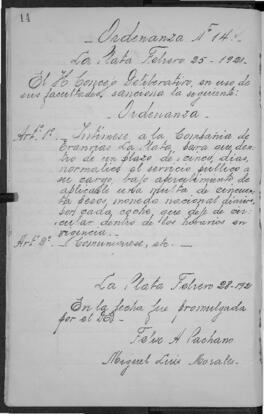 14
Ordenanza Nº 14.
La Plata Febrero 25-1921.
El H. Concejo Deliberativo, en uso de
sus facultades, sanciona la siguiente:
Ordenanza
Art.º 1º. Intímese, a la Compañía de
Tranvías La Plata, para que den-
tro de un plazo de cinco días,
normalice el servicio público a
su cargo bajo apercibimiento de
aplicable una multa de cincuen-
ta pesos, moneda nacional diarios
por cada coche, que deje de cir-
cular dentro de los horarios en
vigencia.
Art.º 2º. Comuníquese, etc.
La Plata Febrero 28-1921
En la fecha fue promulgada
por el D.E.
Felix A Pachano
Miguel Luis Morales.